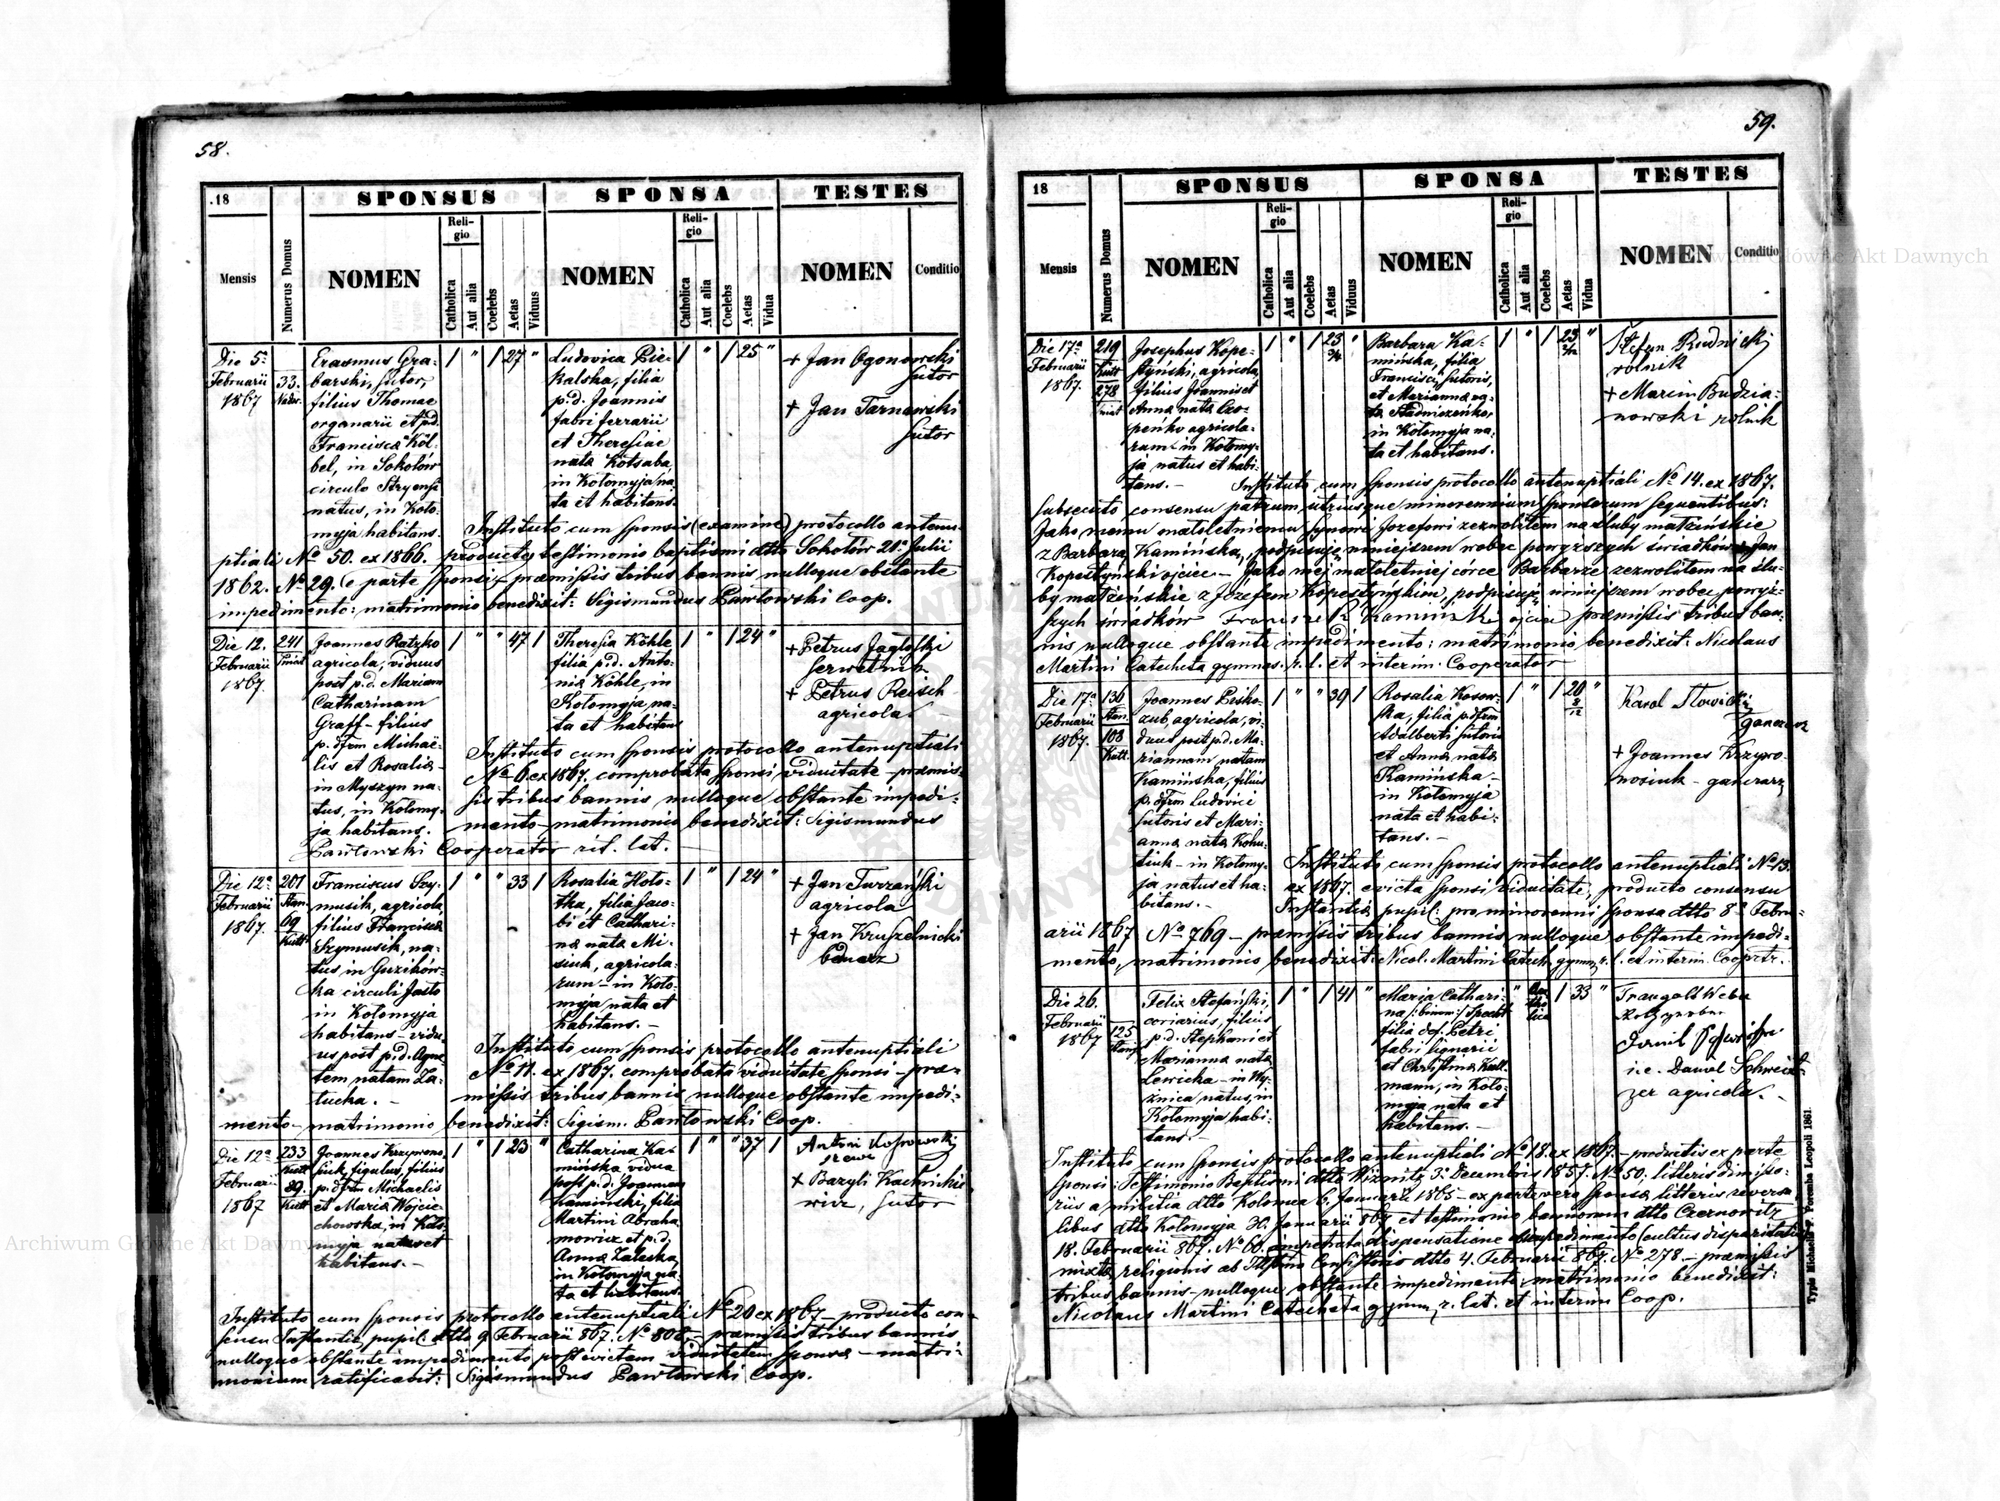 58.
.18
SPONSUS
SPONSA
TESTES
Mensis
Numerus Domus
NOMEN
Religio
Catholica
Aut alia
Coelebs
Aetas
Viduus
NOMEN
Religio
Catholica
Aut alia
Coelebs
Aetas
Vidua
NOMEN
Conditio
Die 5ª
Februarii
1867
33.
Erasmus Gra-
barski, sutor,
filius Thomae
organarii et p.d.
Francisca Köl-
bel, in Sokołów
circulo Stryensi
natus, in Kolo-
myja habitans.
1 " 1 27 "
Ludovica Pie-
kalska, filia
p.d. Joannis
fabri ferrarii
et Theresiae
nata Kotsaba,
in Kolomyja na-
ta et habitans.
1 " 1 25 "
+ Jan Ogonowski
sutor
+ Jan Tarnawski
sutor
Instituto cum sponsis (examine) protocollo antenu-
ptiali No 50. ex 1866. producto testimonio baptismi dtto Sokołów 21ª Julii
1862. No 29. (e parte sponsi) praemissis tribus bannis nulloque obstante
impedimento: matrimonio benedixit: Sigismundus Pawłowski Coop.
Die 12.
Februarii
1867.
241
Joannes Ratzko
agricola, viduus
post p.d. Mariam
Catharinam
Graff - filius
p. dfrm Michaë-
lis et Rosalia -
in Myszyn na-
tus, in Kolomy-
ja habitans.
1 " " 47 1
Theresia Köhle
filia p.d. Anto-
nia Köhle, in
Kolomyja na-
ta et habitans
1 " 1 24 "
+ Petrus Jagłoski
+ Petrus Reisch
agricola
Instituto cum sponsis protocollo antenuptiali
No 6 ex 1867. comprobata sponsi viduitate - praemis-
sis tribus bannis nulloque obstante impedi-
mento - matrimonio benedixit: Sigismundus
Pawłowski Cooperator rit. lat.
Die 12ª
Februarii
1867.
201
Stan.
69
Kutt.
Franciscus Szy-
musik, agricola,
filius Francisca
Szymusik, na-
tus in Guzików-
ka circuli Jasło
in Kolomyja
habitans - vidu-
us post p.d. Agne-
tem natam Za-
tucka. -
1 " " 33 1
Rosalia Hoło-
tka, filia Jaco-
bi et Cathari-
na nata Mi-
siuk, agricola-
rum - in Kolo-
myja nata et
habitans. -
1 " 1 24 "
+ Jan Turzański
agricola
+ Jan Kruszelnicki
Instituto cum sponsis protocollo antenuptiali
No 11. ex 1867. comprobata viduitate sponsi - prae-
missis tribus bannis nulloque obstante impedi-
mento - matrimonio benedixit: Sigism. Pawłowski Coop.
Die 12ª
Februarii
1867
233
Kutt
89.
Kutt
Joannes Krzywono-
siuk, figulus, filius
p. dfrm Michaelis
et Maria Wojcie-
chowska, in Kolo-
myja natus et
habitans. -
1 " 1 23 "
Catharina Ka-
mińska vidua
post p.d. Joannem
Kamiński, filia
Martini Abraha-
mowicz et p.d.
Anna Zaleska,
in Kolomyja na-
ta et habitans.
1 " " 37 1
Antoni
+ Bazyli
sutor
Instituto cum sponsis protocollo antenuptiali No 20 ex 1867 producto con-
sensu Instantia pupil. dtto 9 Februarii 867. No 802. - praemissis tribus bannis
nulloque obstante impedimento post evictam viduitatem sponsa - matri-
monium ratificavit: Sigismundus Pawłowski Coop.
59.
18
SPONSUS
SPONSA
TESTES
Mensis
Numerus Domus
NOMEN
Religio
Catholica
Aut alia
Coelebs
Aetas
Viduus
NOMEN
Religio
Catholica
Aut alia
Coelebs
Aetas
Vidua
NOMEN
Conditio
Die 17ª
Februarii
1867.
219
Kutt
278
Josephus Kope-
styński, agricola,
filius Joannis et
Anna nata Czo-
peńko agricola-
rum - in Kolomy-
ja natus et habi-
tans. -
1 " 1 23 "
Barbara Ka-
mińska, filia
Francisci sutoris,
et Marianna na-
ta Stadniczenko,
in Kolomyja na-
ta et habitans.
1 " 1 23 "
Stefan Rudnicki
rolnik
+ Marcin Budzia-
nowski rolnik
Instituto cum sponsis protocollo antenuptiali No 14. ex 1867.
subsecuto consensu patrum utriusque minorennium sponsorum sequentibus:
Jako memu małoletniemu synowi Józefowi zezwoliłem na śluby małżeńskie
z Barbarą Kamińską, podpisuję niniejszem wobec powyższych świadków Jan
Kopestyński ojciec - Jako mej małoletniej córce Barbarze zezwoliłem na ślu-
by małżeńskie z Józefem Kopestyńskim, podpisuję niniejszem wobec powyż-
szych świadków Franciszek Kamiński ojciec praemissis tribus ban-
nis nulloque obstante impedimento: matrimonio benedixit: Nicolaus
Martini Catecheta gymnas. r. l. et interim. Cooperator
Die 17ª
Februarii
1867.
136
Stan.
108
Kutt.
Joannes Pisko-
zub, agricola, vi-
duus post p.d. Ma-
riannam natam
Kamińska, filius
p. dfrm Ludovici
sutoris et Mari-
anna nata Kohu-
tiuk - in Kolomy-
ja natus et ha-
bitans. -
1 " " 39 1
Rosalia Kosow-
ska, filia p. dfrm
Adalberti sutoris
et Anna nata
Kamińska -
in Kolomyja
nata et habi-
tans. -
1 " 1 20 8/12 "
Karol Słowicki
garncarz
+ Joannes Krzywo-
nosiuk - garncarz
Instituto cum sponsis protocollo antenuptiali No 13.
ex 1867. evicta sponsi viduitate, producto consensu
Instantia pupil: pro minorenni sponsa dtto 8ª Febru-
arii 1867 No 769 - praemissis tribus bannis nulloque obstante impedi-
mento, matrimonio benedixit: Nicol. Martini Catech. gymn. r. l. et interim Cooptr.
Die 26.
Februarii
1867
125
Felix Stefański,
coriarius, filius
p.d. Stephani et
Marianna nata
Lewicka - in Wy-
znica natus, in
Kolomyja habi-
tans. -
1 " 1 41 "
Maria Cathari-
na (:binom:) Specht
filia def. Petri
fabri lignarii
et Christina Kutt-
mann, in Kolo-
myja nata et
habitans. -
" 1 33 "
Traugott Weber
i.e. Dawid Schweit-
zer agricola. -
Instituto cum sponsis protocollo antenuptiali No 18. ex 1867. - productis ex parte
sponsi: Testimonio Baptismi dtto Wiznitz 3ª Decembris 1857. No 50; litteris dimisso-
riis a militia dtto Kolomea 6. Januarii 1865 - ex parte vero sponsa litteris reversa-
libus dtto Kolomyja 30. Januarii 867. et testimonio bannorum dtto Czernovitz
18. Februarii 867. No 60. impetrata dispensatione ab impedimento (cultus disparitatis)
mixta religionis ab Consistorio dtto 4. Februarii 867. No 278. - praemissis
tribus bannis - nulloque obstante impedimento matrimonio benedixit:
Nicolaus Martini Catecheta gymn. r. lat. et interim Coop.
Typis Michaelis F. Poremba Leopoli 1861.
Archiwum Główne Akt Dawnych
Archiwum Główne Akt Dawnych